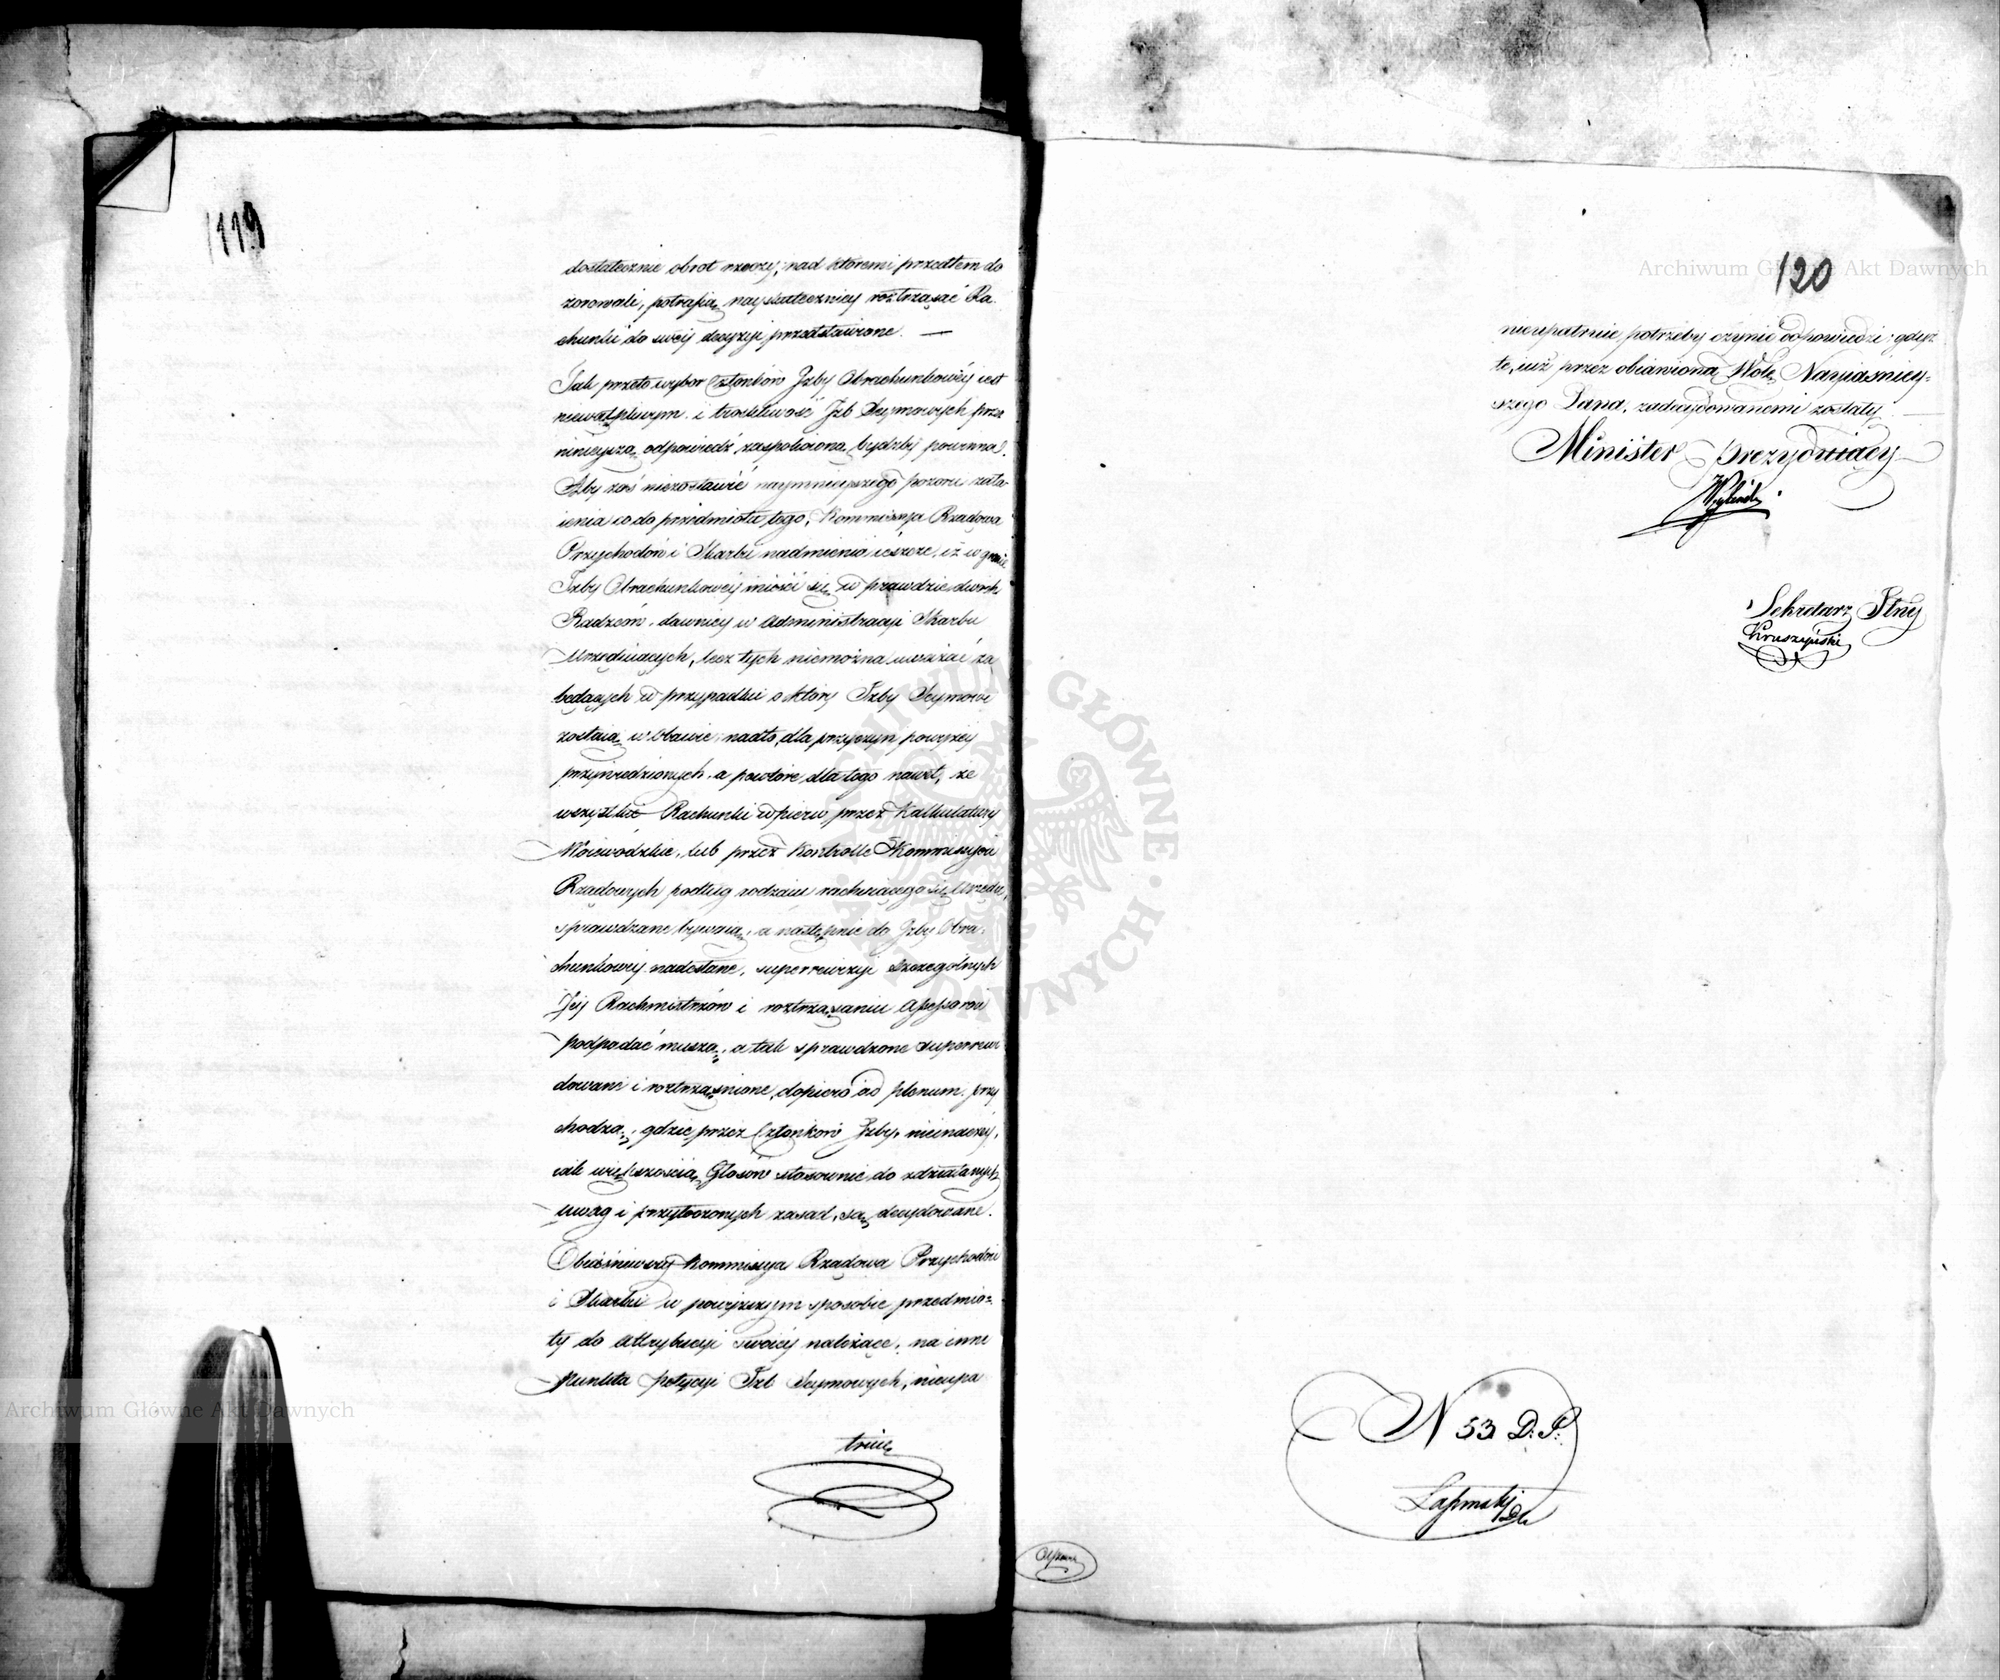 119
dostatecznie obrot rzeczy, nad ktoremi przedtem do
zorowali, potrafią nayskuteczniey roztrząsać Ra
chunki do swéy decyzyi przedstawione. —
Jak przeto wybor Członków Izby Obrachunkowéy iest
niewątpliwym i troskliwość Izb Seymowych przez
ninieyszą odpowiedź zaspokoioną bydźby powinna.
Aby zaś niezostawić naymnieyszego pozoru zata
ienia co do przedmiotu tego, Kommissya Rządowa
Przychodów i Skarbu nadmienia ieszcze, iż w gronie
Izby Obrachunkowéy mieści się w prawdzie dwóch
Radzców, dawniéy w Administracyi Skarbu
Urzęduiących, lecz tych niemożna uważać za
będących w przypadku o który Izby Seymowe
zostaią w obawie, nadto, dla przyczyn powyżéy
przywiedzionych, a powtóre dla tego nawet, że
wszystkie Rachunki wpierw przez Kalkulatury
Woiewódzkie, lub przez Kontrolle Kommissyi
Rządowych podług rodzaiu rachuiącego się Urzędu,
sprawdzane bywaią, a następnie do Izby Obra-
chunkowéy nadesłane, superrewizyi szczególnych
Jéy Rachmistrzów i roztrząsaniu Assessorów
podpadać muszą, a tak sprawdzone superrewi
dowane i roztrząśnione, dopiero ad plenum przy
chodzą, gdzie przez Członków Izby, nieinaczéy,
iak większością Głosów stosownie do zdziałanych
uwag i przytoczonych zasad, są decydowane.
Obiaśniwszy Kommissya Rządowa Przychodów
i Skarbu w powyższym sposobie przedmio-
ty do attrybucyi swoiéy należące, na inne
Punkta petycyi Izb Seymowych, nieupa
truię
120
nieupatruie potrzeby czynić odpowiedzi: gdyż
te, iuż przez obiawioną Wolę Nayiaśniey-
szego Pana, zadecydowanemi zostały. —
Minister Prezyduiący
Sekretarz Jlny
Kruszyński
N 53 D. P.